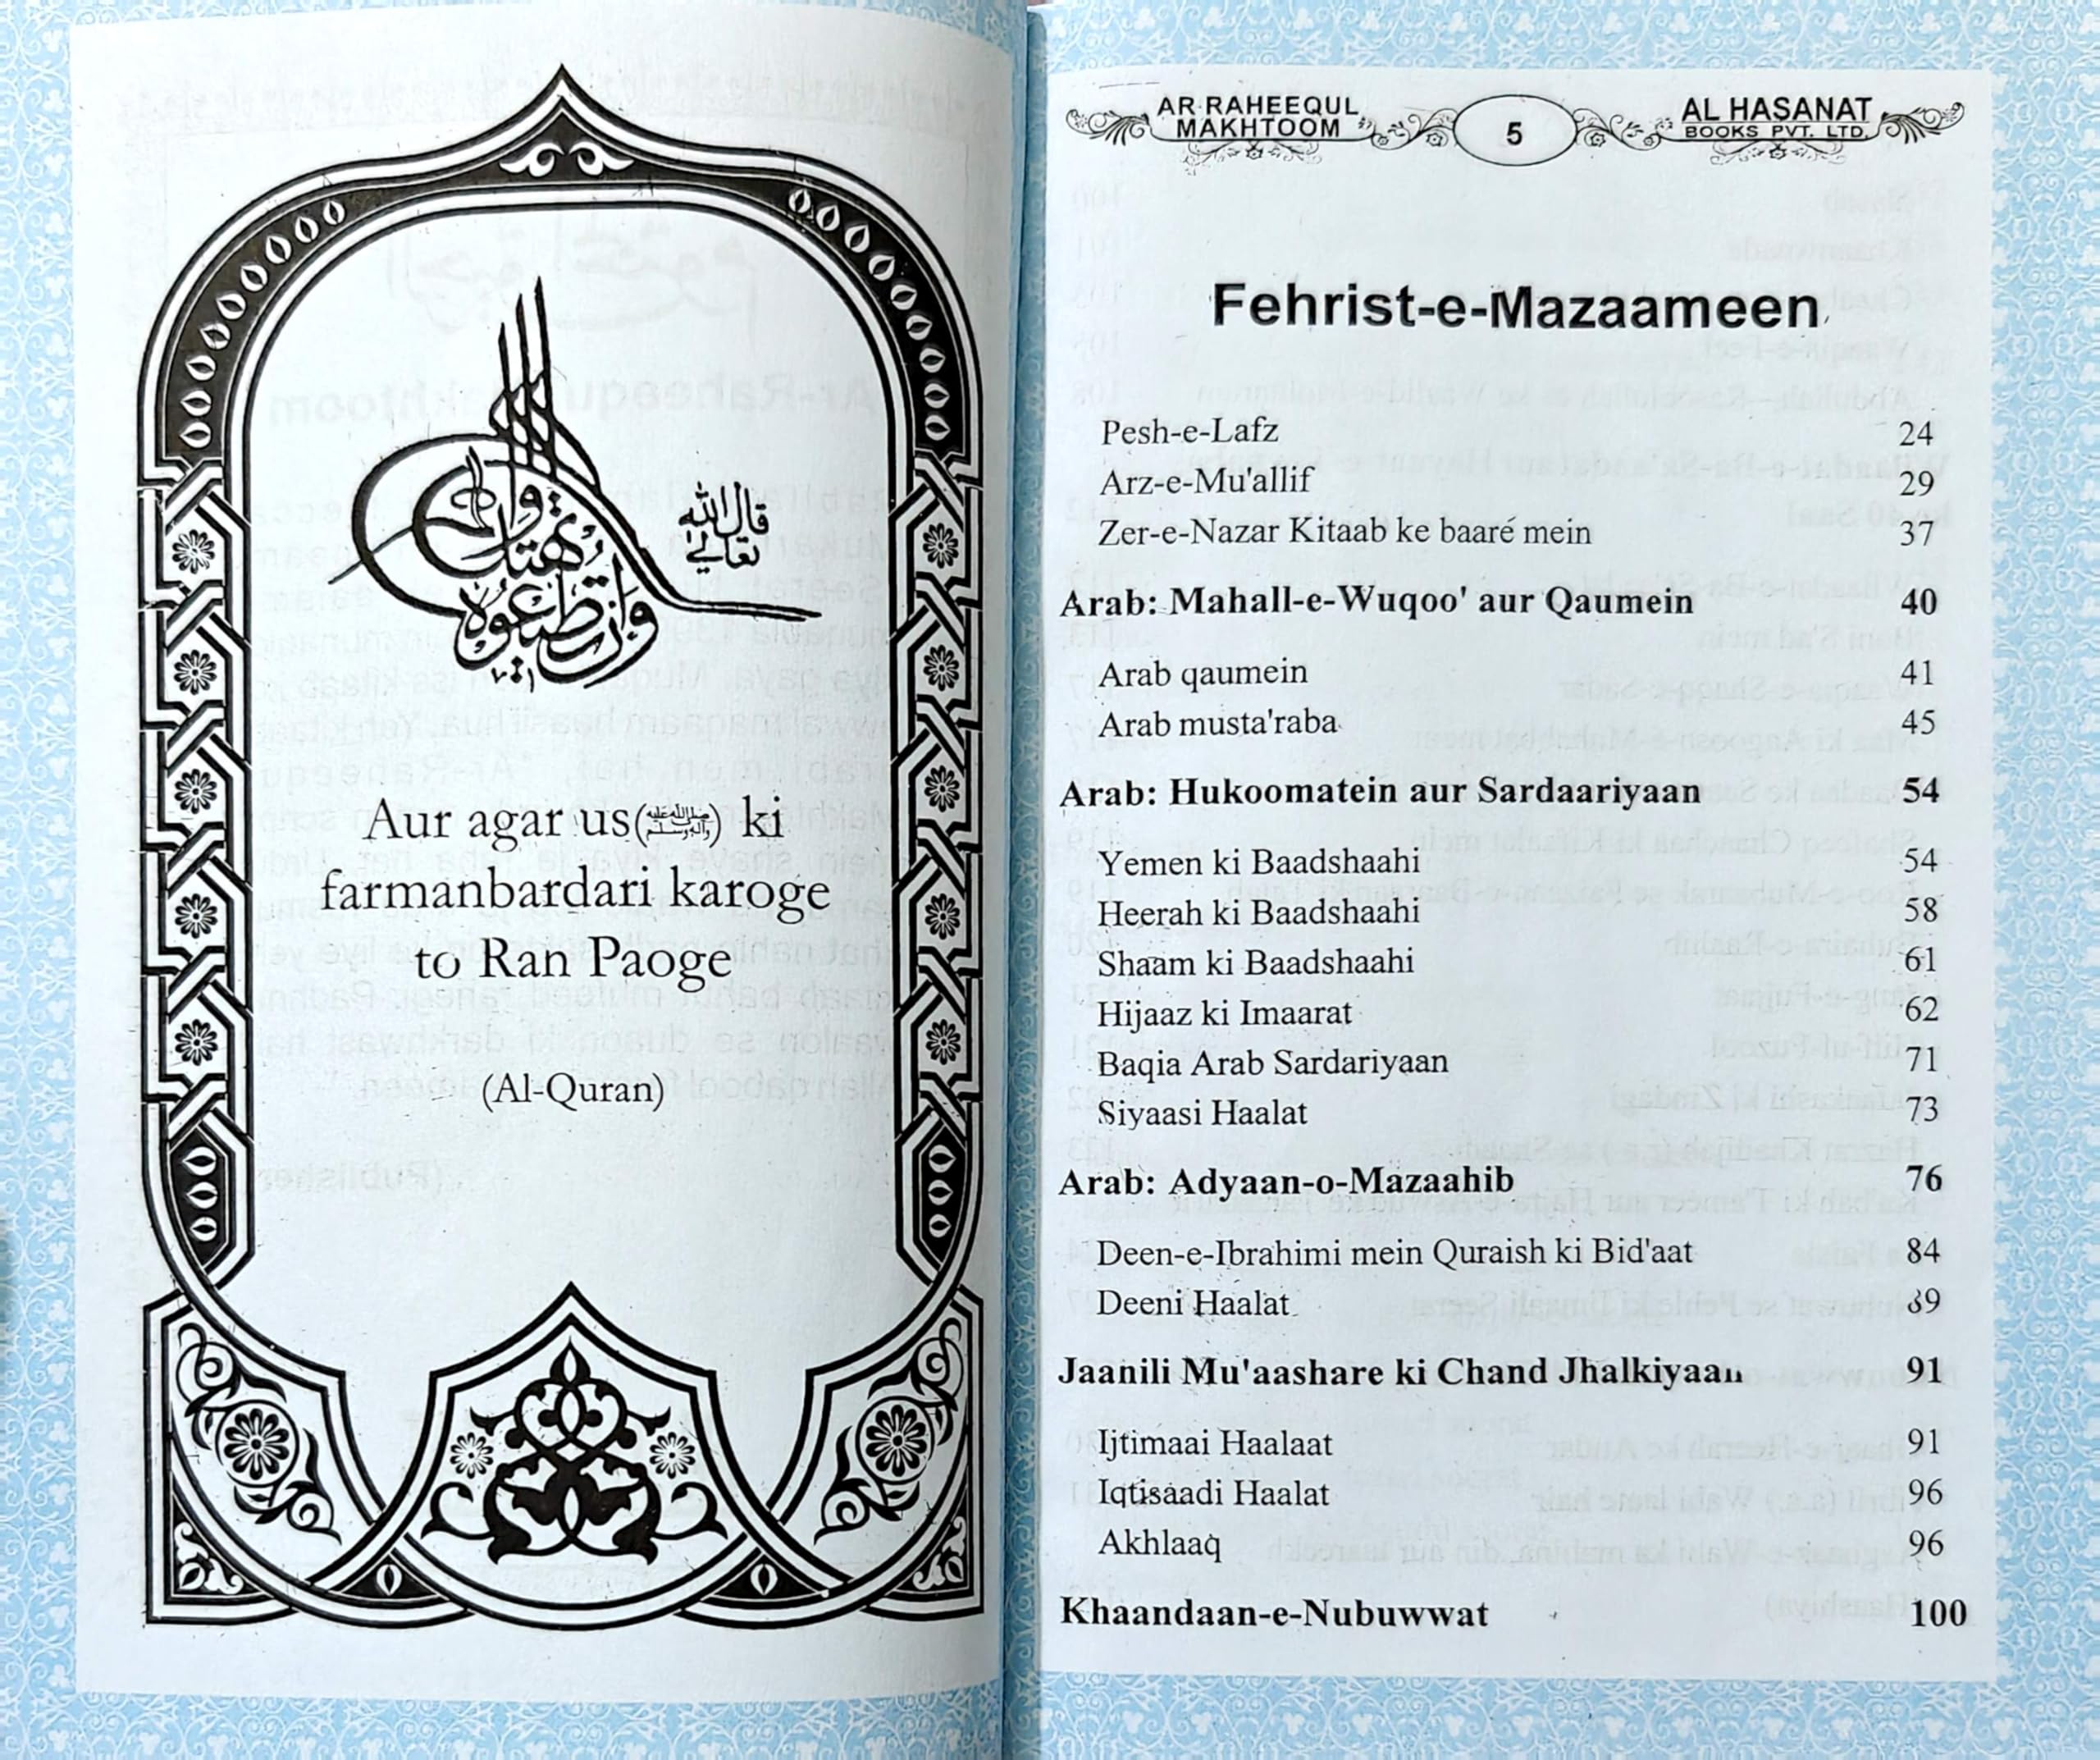 قال الله
تعالى
وإن تطيعوه
تهتدوا
Aur agar us(ﷺ) ki
farmanbardari karoge
to Ran Paoge
(Al-Quran)
AR RAHEEQUL
MAKHTOOM
5
AL HASANAT
BOOKS PVT. LTD.
Fehrist-e-Mazaameen
Pesh-e-Lafz 24
Arz-e-Mu'allif 29
Zer-e-Nazar Kitaab ke baaré mein 37
Arab: Mahall-e-Wuqoo' aur Qaumein 40
Arab qaumein 41
Arab musta'raba 45
Arab: Hukoomatein aur Sardaariyaan 54
Yemen ki Baadshaahi 54
Heerah ki Baadshaahi 58
Shaam ki Baadshaahi 61
Hijaaz ki Imaarat 62
Baqia Arab Sardariyaan 71
Siyaasi Haalat 73
Arab: Adyaan-o-Mazaahib 76
Deen-e-Ibrahimi mein Quraish ki Bid'aat 84
Deeni Haalat 89
Jaahili Mu'aashare ki Chand Jhalkiyaan 91
Ijtimaai Haalaat 91
Iqtisaadi Haalat 96
Akhlaaq 96
Khaandaan-e-Nubuwwat 100